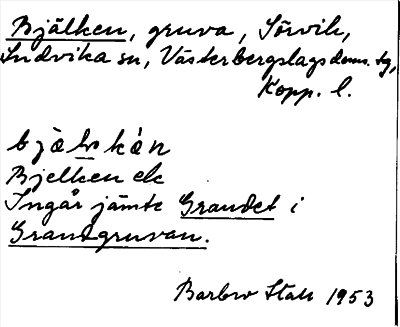 Bjälken, gruva, Sörvik,
Ludvika sn, Västerbergslags doms. tg,
Kopp. l.
bjälkän
Bjelken ek
Ingår jämte Grandet i
Grandgruvan.
Barbro Stah 1953